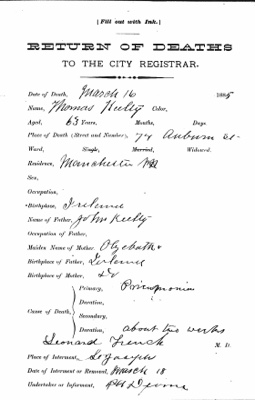 [Fill out with Ink.]
RETURN OF DEATHS
TO THE CITY REGISTRAR.
Date of Death, March 16 1885
Name, Thomas Kielty Color,
Aged, 63 Years, Months, Days.
Place of Death (Street and Number), 74 Auburn St
Ward, Single, Married, Widowed.
Residence, Manchester NH
Sex,
Occupation,
Birthplace, Ireland
Name of Father, John Kielty
Occupation of Father,
Maiden Name of Mother,
Birthplace of Father, Ireland
Birthplace of Mother, Do
Cause of Death,
Primary, Pneumonia
Duration,
Secondary,
Duration, about two weeks
Leonard French M. D.
Place of Interment, St Joseph
Date of Interment or Removal, March 18
Undertaker or Informer, Devine